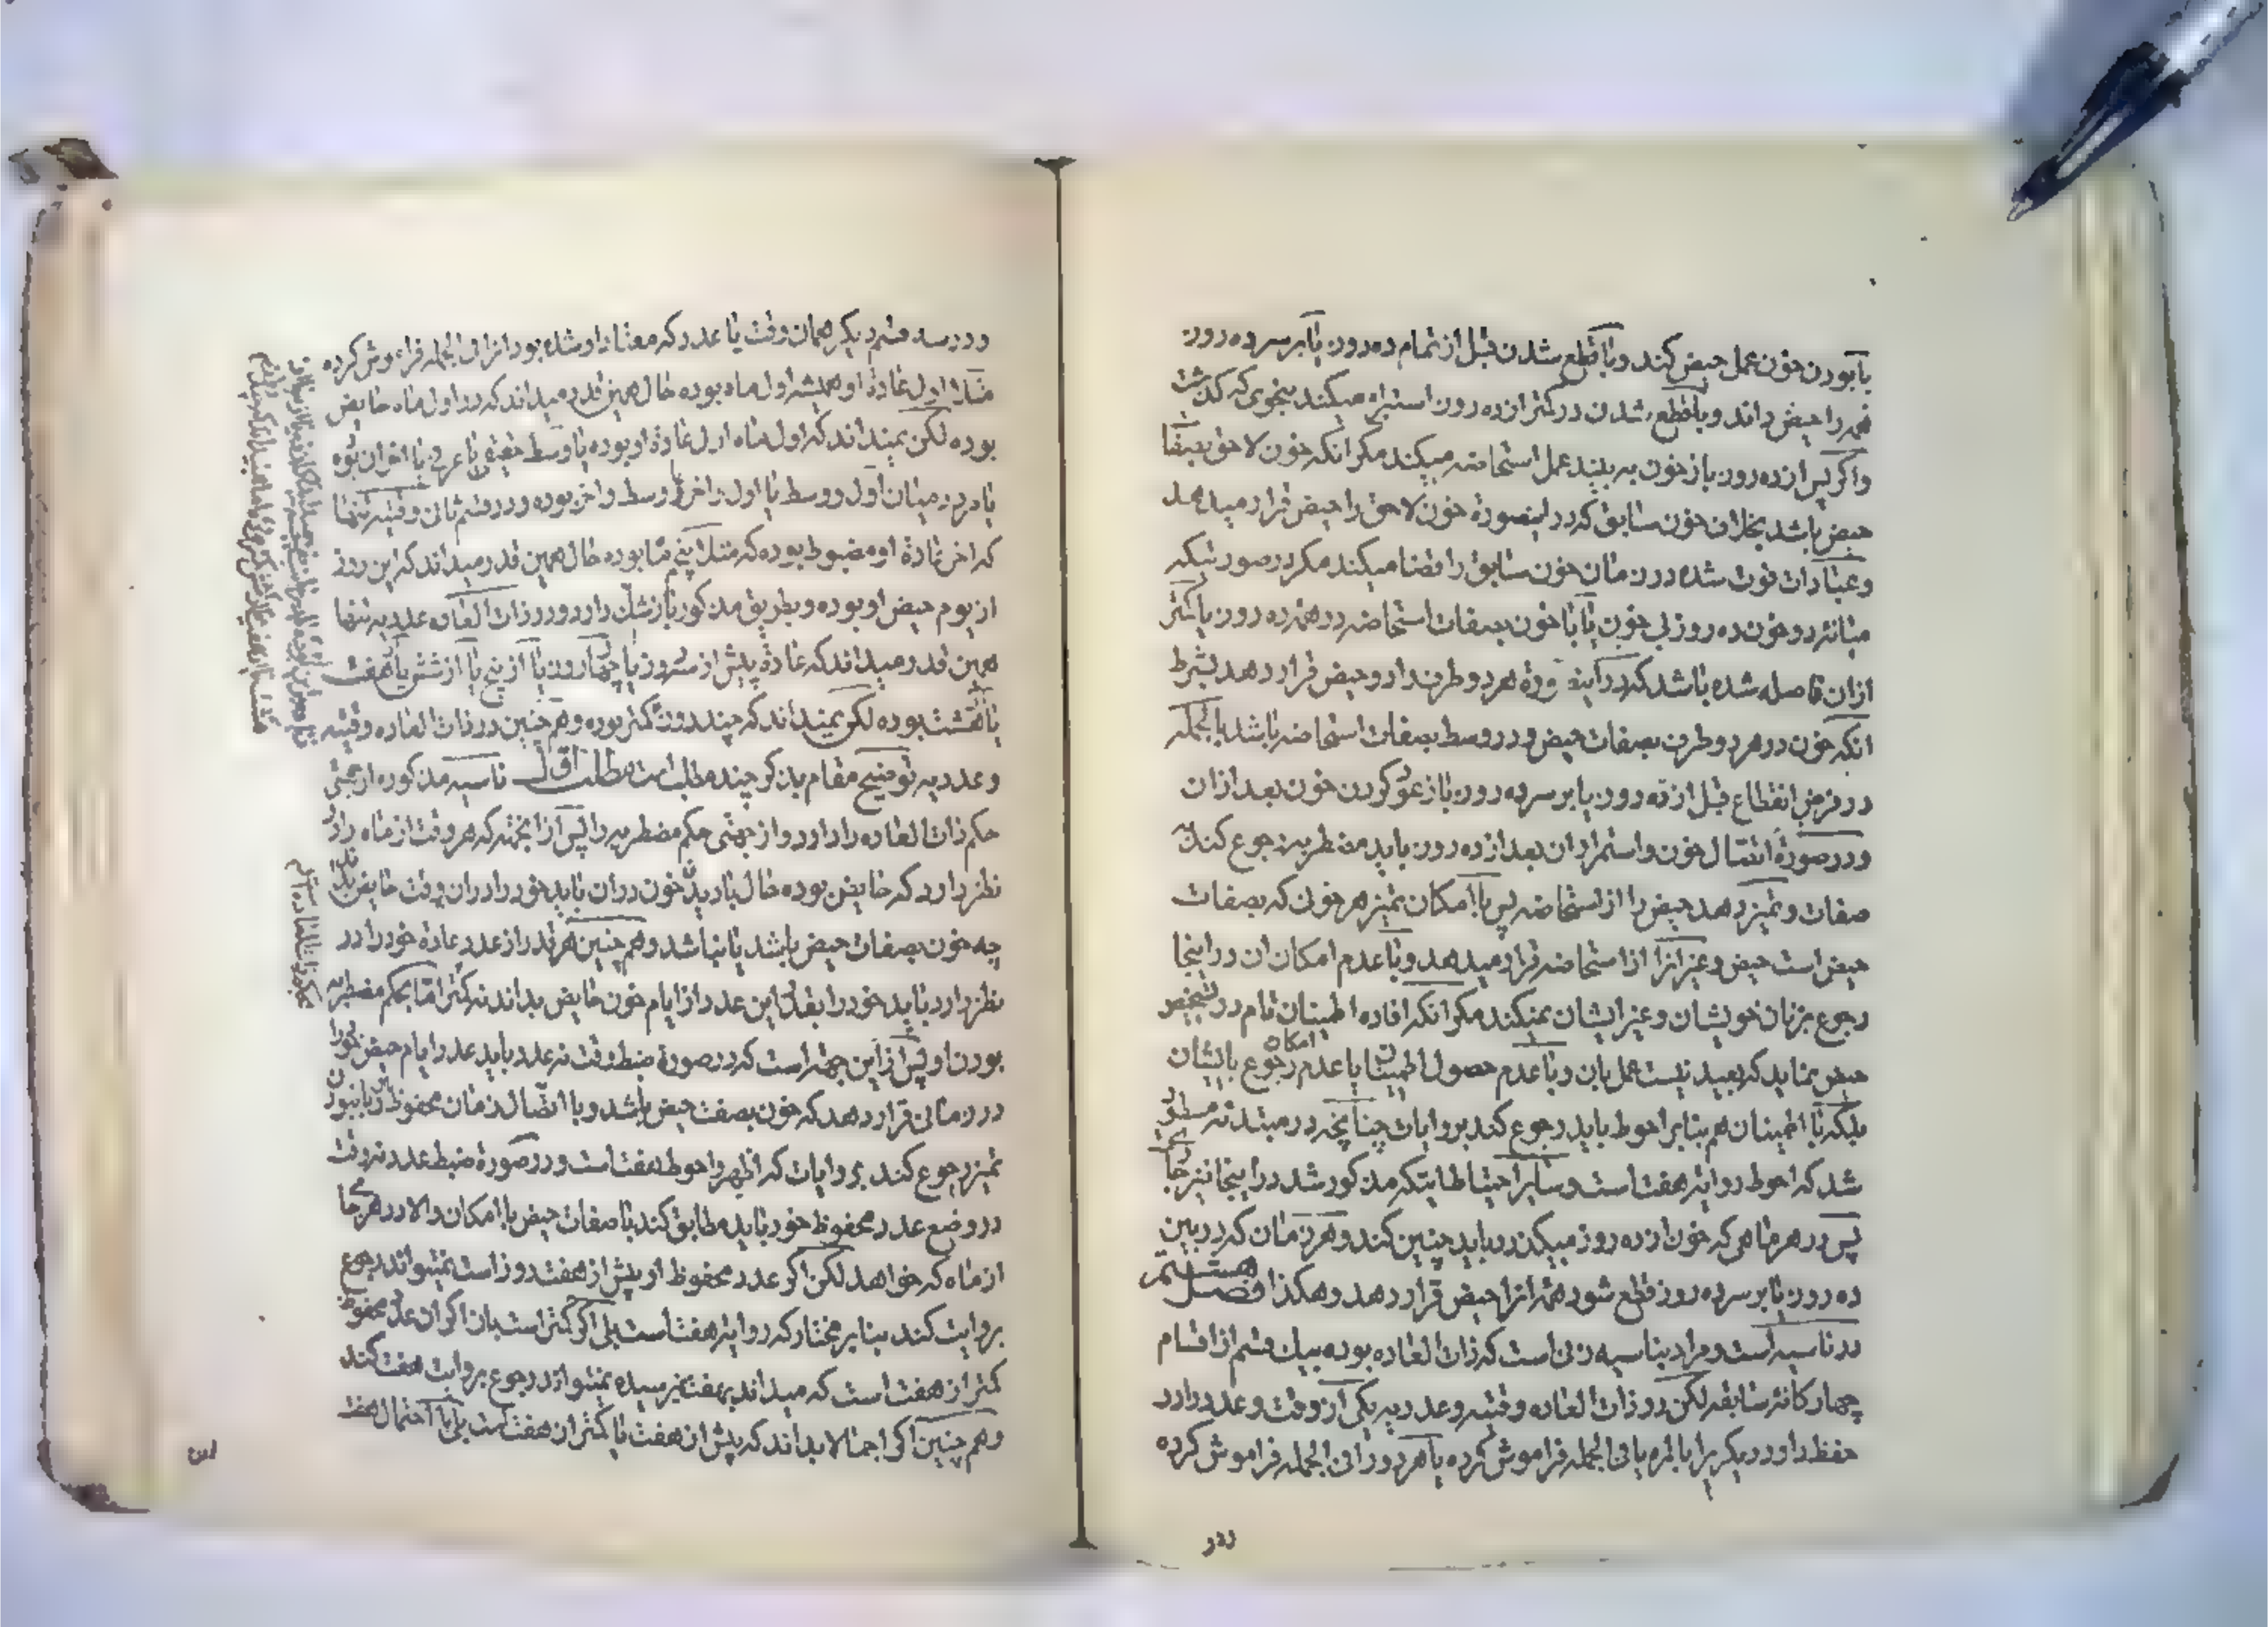 با بودن خون عمل حیض کند و با قطع شدن قبل از تمام ده روز یا بر سر ده روز
همه را حیض داند و با قطع شدن در کمتر از ده روز استبراء میکند بنحوی که گذشت
و اگر پس از ده روز باز خون به بیند عمل استحاضه میکند مگر انکه خون لاحق بصفات
حیض باشد بخلاف خون سابق که در اینصورة خون لاحق را حیض قرار میدهد
و عبادات فوت شده در زمان خون سابق را قضا میکند مگر در صورتیکه
میانه دو خون ده روز بی خون یا با خون بصفات استحاضه در همه ده روز یا کمتر
ازان فاصله شده باشد که در اینصورة هر دو طرف را دو حیض قرار دهد بشرط
انکه خون در هر دو طرف بصفات حیض و در وسط بصفات استحاضه باشد بالجمله
در فرض انقطاع قبل از ده روز یا بر سر ده روز یا از عود کردن خون بعد ازان
و در صورة اتصال خون و استمرار ان بعد از ده روز باید مضطربه رجوع کند به
صفات و تمیز دهد حیض را از استحاضه پس با امکان تمیز هر خون که بصفات
حیض است حیض و غیر انرا از استحاضه قرار میدهد و با عدم امکان ان در اینجا
رجوع بزنان خویشان و غیر ایشان نمیکند مگر انکه افاده اطمینان تام در تشخیص
حیض نماید که بعید نیست عمل بان و با عدم حصول اطمینان یا عدم امکان رجوع بایشان
بلکه با اطمینان هم بنابر احوط باید رجوع کند بروایات چنانچه در مبتدئه مسطور
شد که احوط روایة هفت است و سایر احتیاطاتیکه مذکور شد در اینجا نیز جاری
پس در هر ماهی که خون از ده روز میگذرد باید چنین کند و هر زمان که در بین
ده روز یا بر سر ده روز قطع شود همه انرا حیض قرار دهد و هکذا فصل هشتم
در ناسیه است و مراد بناسیه زنی است که ذات العاده بوده بیک قسم از اقسام
چهارکانه سابقه لکن در ذات العاده وقتیه و عددیه یکی از وقت و عدد را در
حفظ دارد و دیگریرا بالمره یا فی الجمله فراموش کرده یا هر دو را فی الجمله فراموش کرده
ودر
و در سه قسم دیگر همان وقت یا عدد که معتاد او شده بود انرا فی الجمله فراموش کرده
مثلا اول عادة او همیشه اول ماه بوده حال همین قدر میداند که در اول ماه حایض
بوده لکن نمیداند که اول ماه اول عادة او بوده یا وسط حقیقی یا عرفی یا اخر ان بوده
یا در میان اول و وسط یا اول و اخر یا وسط و اخر بوده و در قسم ثانی وقتیه تنها
که اخر عادة او مضبوط بوده که مثلا پنجم بوده حال همین قدر میداند که این روز
از یوم حیض او بوده و بطریق مذکور باز شک دارد و در ذات العاده عددیه تنها
همین قدر میداند که عادة پیش از سه روز یا چهار روز یا از پنج یا از شش یا هفت
یا هشت بوده لکن نمیداند که چند روز کمتر بوده و هم چنین در ذات العاده وقتیه
و عددیه توضیح مقام بذکر چند مطلب است مطلب اول ناسیه مذکوره از جهتی
حکم ذات العاده را دارد و از جهتی حکم مضطربه را پس از انجهة که هر وقت از ماه را در
نظر دارد که حایض بوده حال با دیدن خون در ان باید خود را در ان وقت حایض بداند
چه خون بصفات حیض باشد یا نباشد و هم چنین هر قدر از عدد عادة خود را در
نظر دارد باید خود را بقدر این عدد از ایام خون حایض بداند نه کمتر اما بحکم مضطربه
بودن او پس از این جهة است که در صورة ضبط وقت نه عدد باید عدد ایام حیض خود را
در زمانی قرار دهد که خون بصفت حیض باشد و با اتصال زمان محفوظ و با نبودن
تمیز رجوع کند بروایات که اظهر و احوط هفت است و در صورة ضبط عدد نه وقت
در وضع عدد محفوظ خود باید مطابق کند با صفات حیض با امکان والا در هر جا
از ماه که خواهد لکن اگر عدد محفوظ او پیش از هفت روز است نمیتواند رجوع
بروایت کند بنابر مختار که روایة هفت است بلی اگر کمتر است بان اگر ان عدد محفوظ
کمتر از هفت است که میداند بهفت نمیرسیده نمیتواند رجوع بروایت هفت کند
و هم چنین اگر اجمالا بداند که پیش از هفت یا کمتر از هفت است بلی با احتمال هفت
این